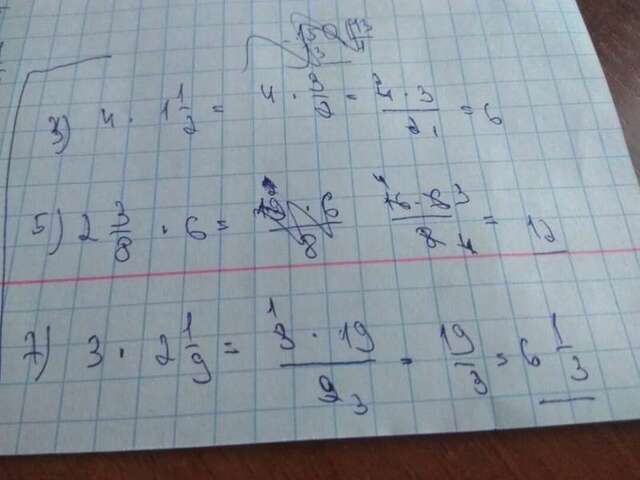 3) 4 · 1 1/2 = 4 · 3/2 = 4 · 3/2 = 6
5) 2 3/8 · 6 = 16 · 6/8 = 12
7) 3 · 2 1/9 = 3 · 19/9 = 19/3 = 6 1/3